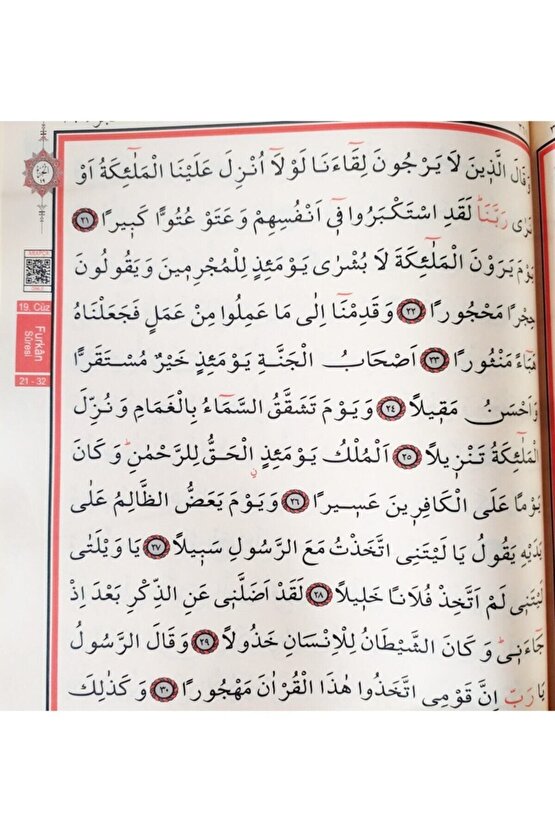 وَقَالَ الَّذ۪ينَ لَا يَرْجُونَ لِقَٓاءَنَا لَوْلَٓا اُنْزِلَ عَلَيْنَا الْمَلٰٓئِكَةُ اَوْ
نَرٰى رَبَّنَاۜ لَقَدِ اسْتَكْبَرُوا ف۪ٓي اَنْفُسِهِمْ وَعَتَوْ عُتُوًّا كَب۪يرًا ٢١
يَوْمَ يَرَوْنَ الْمَلٰٓئِكَةَ لَا بُشْرٰى يَوْمَئِذٍ لِلْمُجْرِم۪ينَ وَيَقُولُونَ
حِجْرًا مَحْجُورًا ٢٢ وَقَدِمْنَٓا اِلٰى مَا عَمِلُوا مِنْ عَمَلٍ فَجَعَلْنَاهُ
هَبَٓاءً مَنْثُورًا ٢٣ اَصْحَابُ الْجَنَّةِ يَوْمَئِذٍ خَيْرٌ مُسْتَقَرًّا
وَاَحْسَنُ مَق۪يلًا ٢٤ وَيَوْمَ تَشَقَّقُ السَّمَٓاءُ بِالْغَمَامِ وَنُزِّلَ
الْمَلٰٓئِكَةُ تَنْز۪يلًا ٢٥ اَلْمُلْكُ يَوْمَئِذٍ الْحَقُّ لِلرَّحْمٰنِۜ وَكَانَ
يَوْمًا عَلَى الْكَافِر۪ينَ عَس۪يرًا ٢٦ وَيَوْمَ يَعَضُّ الظَّالِمُ عَلٰى
يَدَيْهِ يَقُولُ يَا لَيْتَنِي اتَّخَذْتُ مَعَ الرَّسُولِ سَب۪يلًا ٢٧ يَا وَيْلَتٰى
لَيْتَن۪ي لَمْ اَتَّخِذْ فُلَانًا خَل۪يلًا ٢٨ لَقَدْ اَضَلَّن۪ي عَنِ الذِّكْرِ بَعْدَ اِذْ
جَٓاءَن۪يۜ وَكَانَ الشَّيْطَانُ لِلْاِنْسَانِ خَذُولًا ٢٩ وَقَالَ الرَّسُولُ
يَا رَبِّ اِنَّ قَوْمِي اتَّخَذُوا هٰذَا الْقُرْاٰنَ مَهْجُورًا ٣٠ وَكَذٰلِكَ
19. Cüz
Furkân
Sûresi
21 - 32